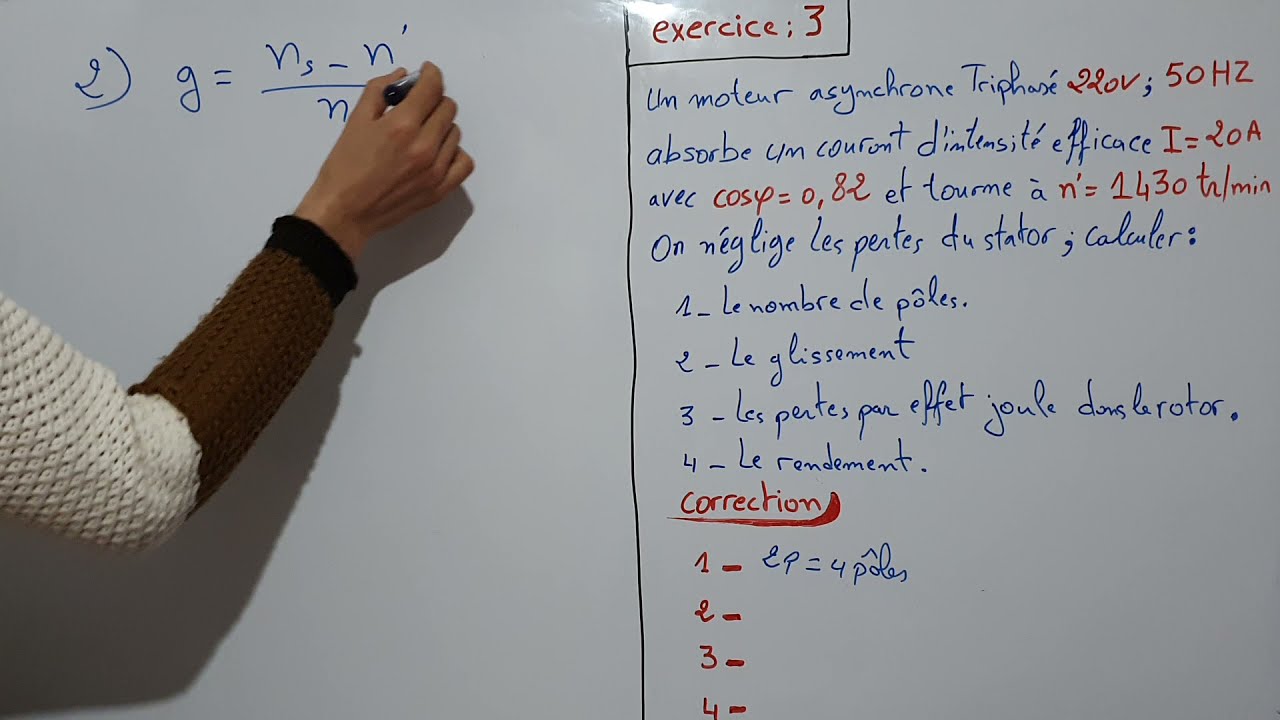 2) g = ns - n' / n
exercice : 3
Un moteur asynchrone Triphasé 220V ; 50HZ
absorbe un courant d'intensité efficace I = 20A
avec cosφ = 0,82 et tourne à n' = 1430 tr/min
On néglige les pertes du stator ; calculer :
1 - Le nombre de pôles.
2 - Le glissement
3 - Les pertes par effet joule dans le rotor.
4 - Le rendement.
correction
1 - 2p = 4 pôles
2 -
3 -
4 -